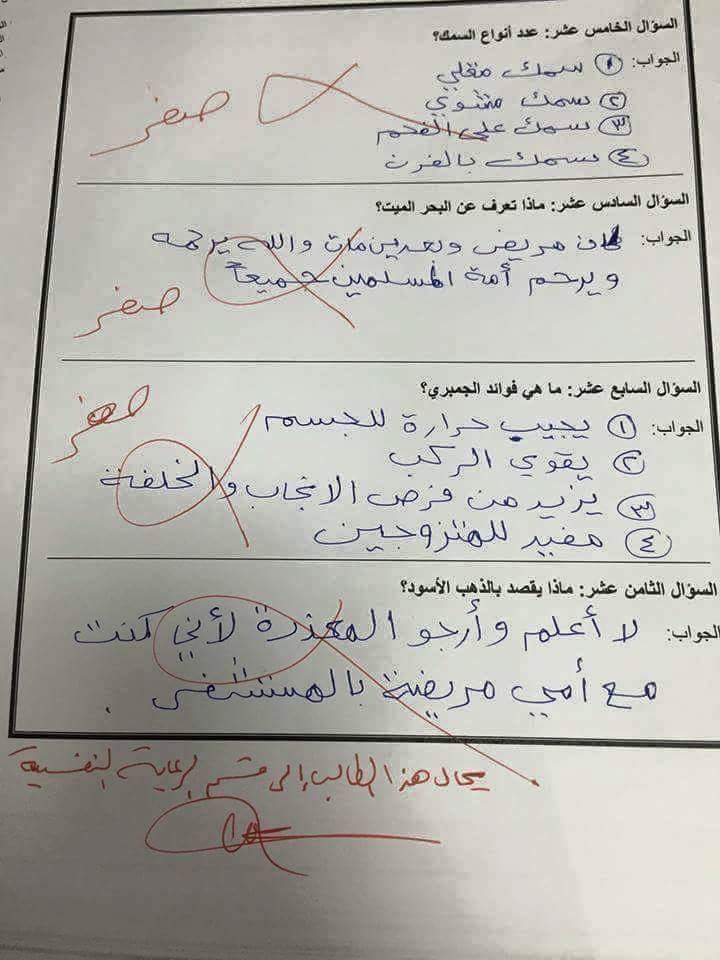 السؤال الخامس عشر: عدد أنواع السمك؟
الجواب: ١ سمك مقلي
٢ سمك مشوي
٣ سمك على الفحم
٤ سمك بالفرن
صفر
السؤال السادس عشر: ماذا تعرف عن البحر الميت؟
الجواب: كان مريض وبعدين مات والله يرحمه
ويرحم أمة المسلمين جميعاً
صفر
السؤال السابع عشر: ما هي فوائد الجمبري؟
الجواب: ١ يجيب حرارة للجسم
٢ يقوي الركب
٣ يزيد من فرص الانجاب والخلفة
٤ مفيد للمتزوجين
صفر
السؤال الثامن عشر: ماذا يقصد بالذهب الأسود؟
الجواب: لا أعلم وأرجو المعذرة لأني كنت
مع أمي مريضة بالمستشفى .
يحال هذا الطالب إلى قسم الرعاية النفسية